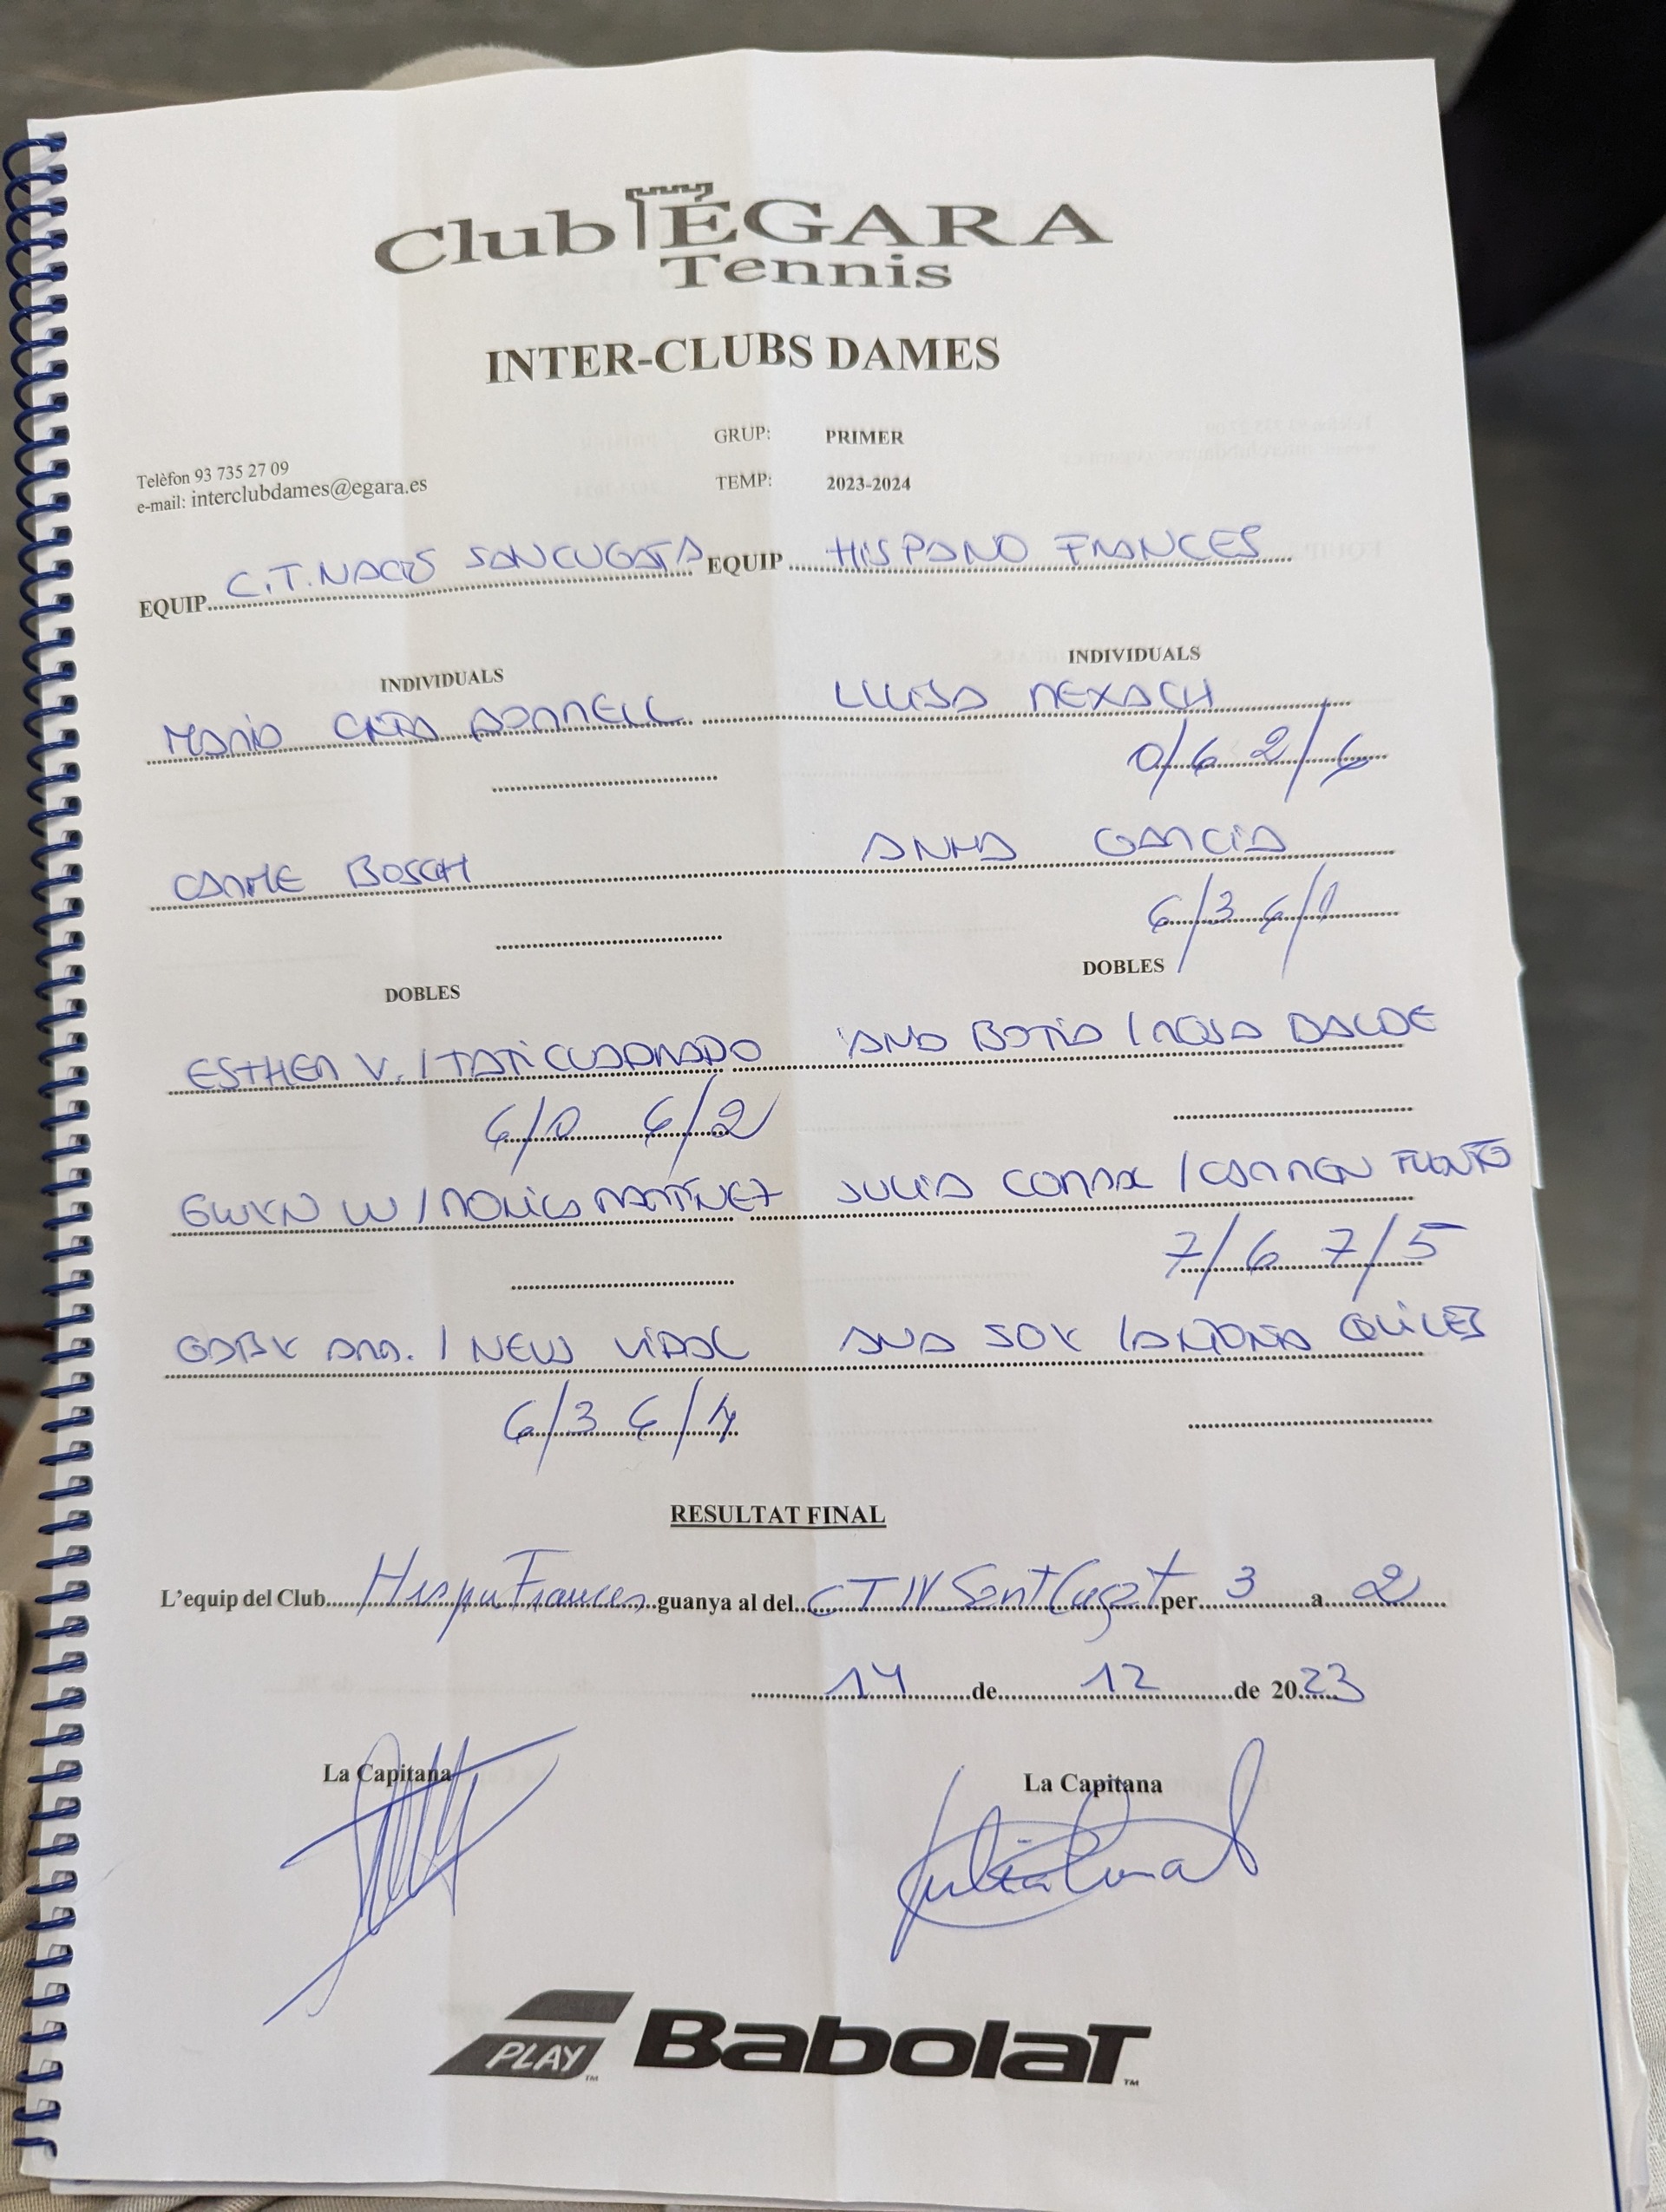 Club ÉGARA
Tennis
INTER-CLUBS DAMES
GRUP: PRIMER
Telèfon 93 735 27 09
e-mail: interclubdames@egara.es
TEMP: 2023-2024
EQUIP C.T. NACIÓ SANCUGATA EQUIP HISPANO FRANCES
INDIVIDUALS INDIVIDUALS
MARIA LLUISA REXACH
0/6 2/6
CARME BOSCH ANNA GARCIA
6/3 6/1
DOBLES DOBLES
ESTHER V. / TATI CUADRADO ANA BOTIA / ROSA BALDE
6/0 6/2
GWYN W / MONICA MARTINEZ JULIA / CARMEN
7/6 7/5
GABY ARA. / NEW VIDAL ANA SOY / ANTONIA QUILES
6/3 6/4
RESULTAT FINAL
L'equip del Club Hispa Frances guanya al del CTN Sant Cugat per 3 a 2
14 de 12 de 2023
La Capitana La Capitana
PLAY BabolaT